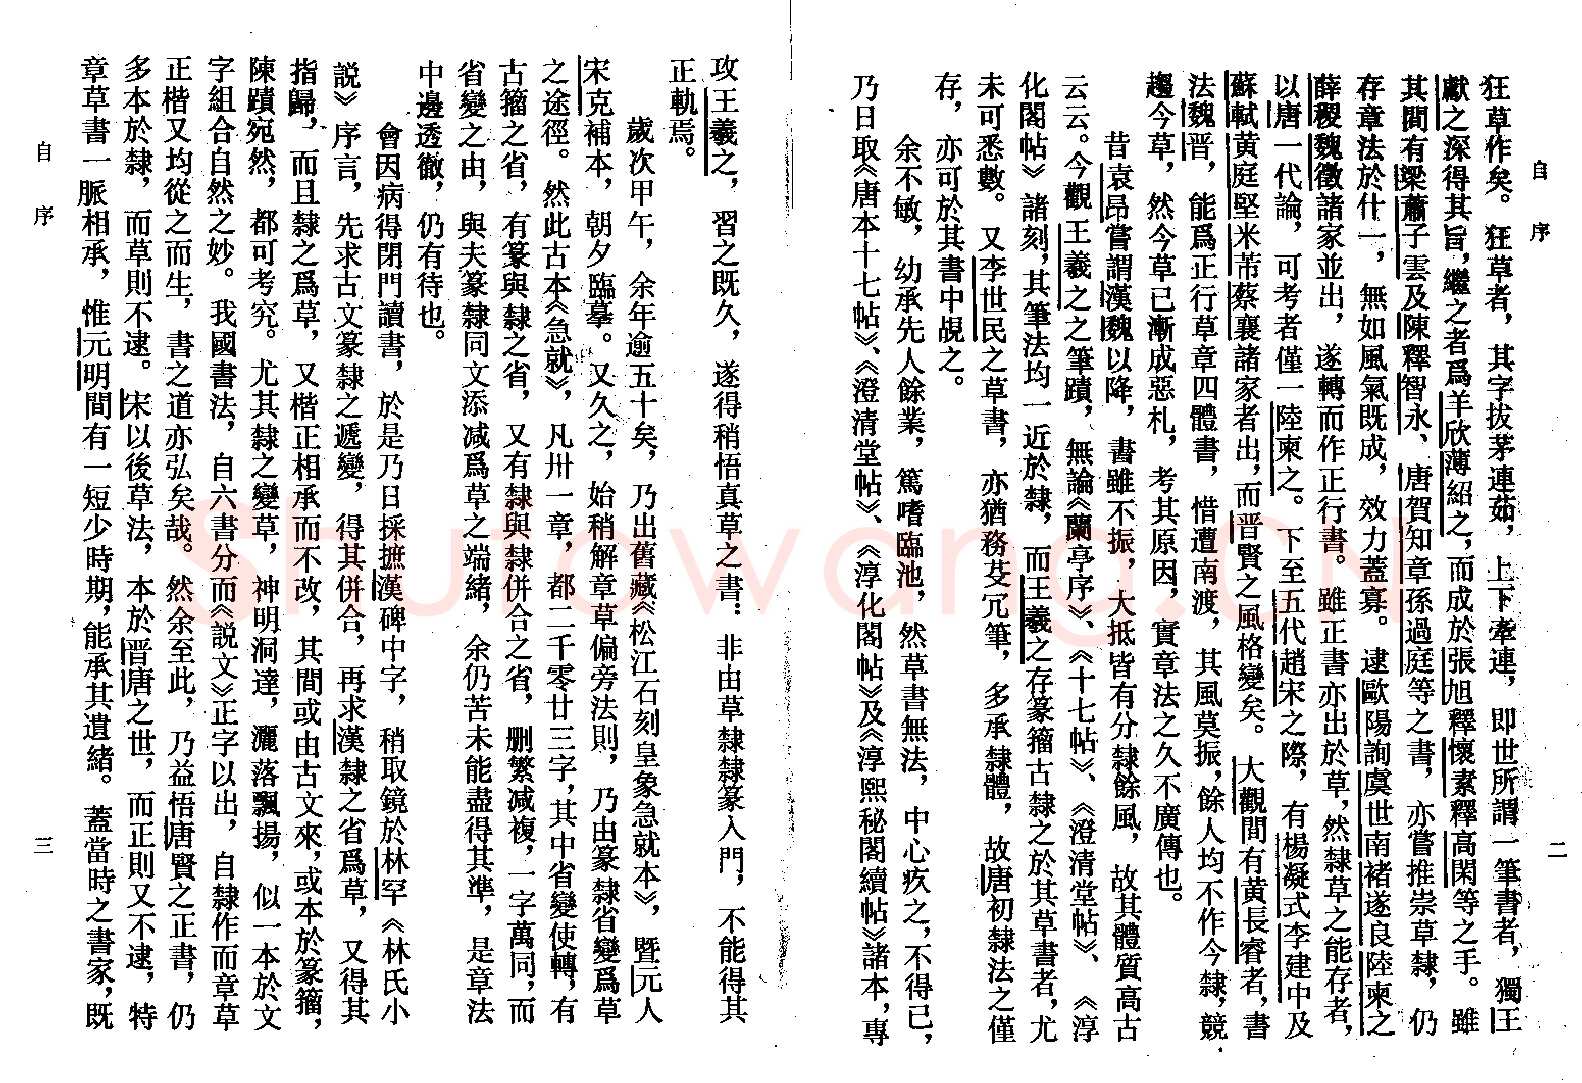 自序
二
狂草作矣。狂草者，其字拔茅連茹，上下牽連，即世所謂一筆書者，獨王
獻之深得其旨，繼之者爲羊欣薄紹之，而成於張旭釋懷素釋高閑等之手。雖
其間有梁蕭子雲及陳釋智永、唐賀知章孫過庭等之書，亦嘗推崇草隸，仍
存章法於什一，無如風氣既成，效力蓋寡。逮歐陽詢虞世南褚遂良陸柬之
薛稷魏徵諸家並出，遂轉而作正行書。雖正書亦出於草，然隸草之能存者，
以唐一代論，可考者僅一陸柬之。下至五代趙宋之際，有楊凝式李建中及
蘇軾黃庭堅米芾蔡襄諸家者出，而晋賢之風格變矣。大觀間有黃長睿者，書
法魏晋，能爲正行草章四體書，惜遭南渡，其風莫振，餘人均不作今隸，競
趨今草，然今草已漸成惡札，考其原因，實章法之久不廣傳也。
昔袁昂嘗謂漢魏以降，書雖不振，大抵皆有分隸餘風，故其體質高古
云云。今觀王羲之之筆蹟，無論《蘭亭序》、《十七帖》、《澄清堂帖》、《淳
化閣帖》諸刻，其筆法均一近於隸，而王羲之存篆籀古隸之於其草書者，尤
未可悉數。又李世民之草書，亦猶務芟冗筆，多承隸體，故唐初隸法之僅
存，亦可於其書中覘之。
余不敏，幼承先人餘業，篤嗜臨池，然草書無法，中心疚之，不得已，
乃日取《唐本十七帖》、《澄清堂帖》、《淳化閣帖》及《淳熙秘閣續帖》諸本，專
攻王羲之，習之既久，遂得稍悟真草之書：非由草隸隸篆入門，不能得其
正軌焉。
歲次甲午，余年逾五十矣，乃出舊藏《松江石刻皇象急就本》，暨元人
宋克補本，朝夕臨摹。又久之，始稍解章草偏旁法則，乃由篆隸省變爲草
之途徑。然此古本《急就》，凡卅一章，都二千零廿三字，其中省變使轉，有
古籀之省，有篆與隸之省，又有隸與隸併合之省，刪繁減複，一字萬同，而
省變之由，與夫篆隸同文添減爲草之端緒，余仍苦未能盡得其準，是章法
中邊透徹，仍有待也。
會因病得閉門讀書，於是乃日採摭漢碑中字，稍取鏡於林罕《林氏小
說》序言，先求古文篆隸之遞變，得其併合，再求漢隸之省爲草，又得其
指歸，而且隸之爲草，又楷正相承而不改，其間或由古文來，或本於篆籀，
陳蹟宛然，都可考究。尤其隸之變草，神明洞達，灑落飄揚，似一本於文
字組合自然之妙。我國書法，自六書分而《說文》正字以出，自隸作而章草
正楷又均從之而生，書之道亦弘矣哉。然余至此，乃益悟唐賢之正書，仍
多本於隸，而草則不逮。宋以後草法，本於晋唐之世，而正則又不逮，特
章草書一脈相承，惟元明間有一短少時期，能承其遺緒。蓋當時之書家，既
自序
三